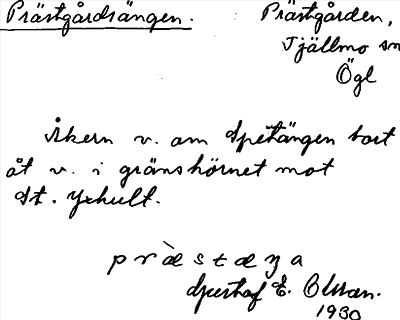 Prästgårdsängen. Prästgården,
Tjällmo sn
Ögl
Åkern v. om Spetängen bort
åt v. i gränshörnet mot
St. Yxhult.
pr&#x300;æstæŋa
Gustaf E. Olsson.
1930